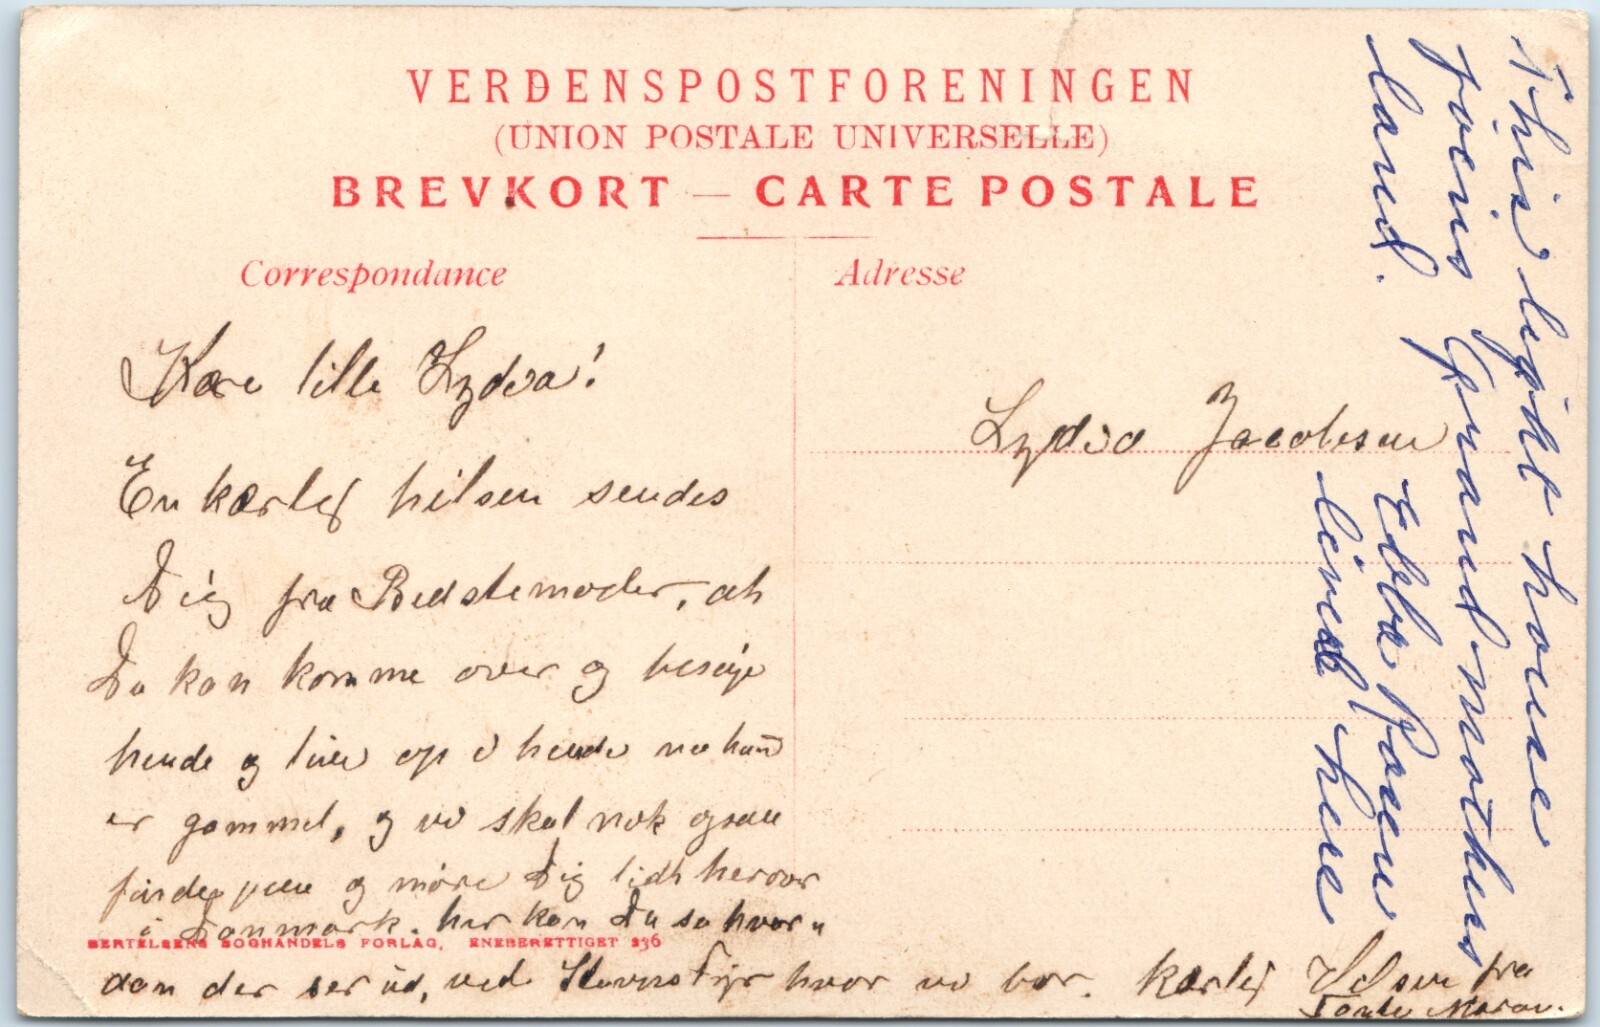 VERDENSPOSTFORENINGEN
(UNION POSTALE UNIVERSELLE)
BREVKORT — CARTE POSTALE
Correspondance
Adresse
Kære lille Lydia!
En kærlig hilsen sendes
Dig fra Bedstemoder, at
Du kan komme over og besøje
hende og live op i hende naa hun
er gammel, og vi skal nok ogsaa
finde paa og more Dig lidt herover
i Danmark. her kan Du se hvor
dan der ser ud, ved Stevns Fyr hvor vi bor. kærlig Hilsen fra
Tante Maren.
BERTELSENS BOGHANDELS FORLAG, ENEBERETTIGET 236
Lydia Jacobsen
This light house
joins Grandmothers
land.
Ebba Raen
lived here